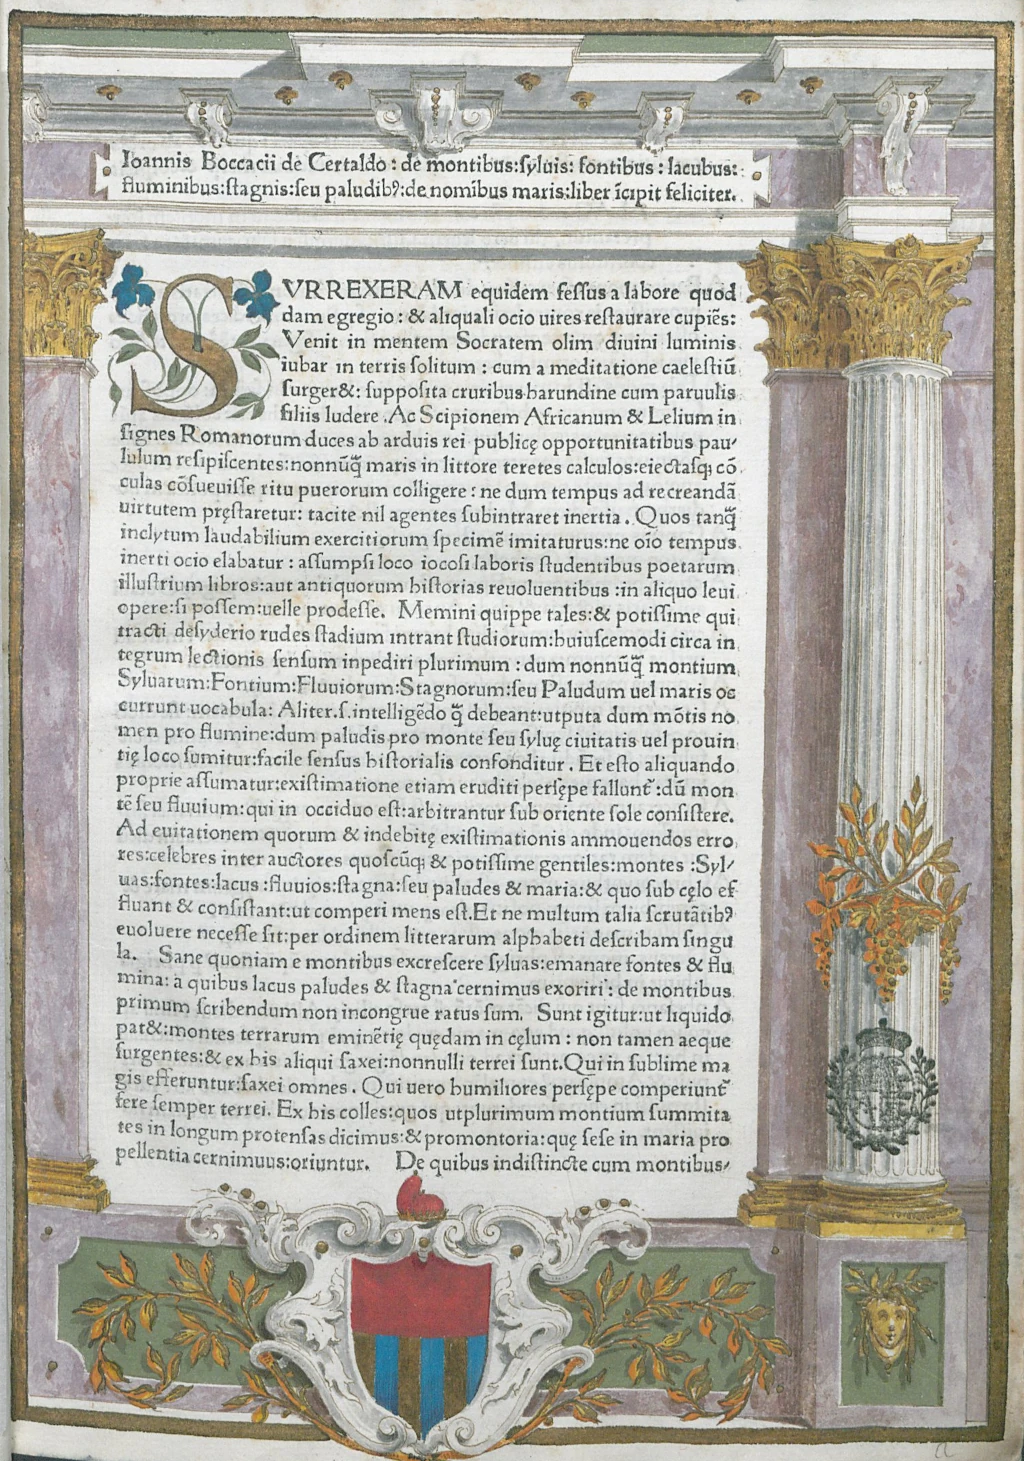 Ioannis Boccacii de Certaldo : de montibus:ſyluis: fontibus : lacubus:
fluminibus:ſtagnis:ſeu paludibꝰ:de nomībus maris:liber īcipit feliciter.
SVRREXERAM equidem feſſus a labore quod
dam egregio : & aliquali ocio uires reſtaurare cupiēs:
Venit in mentem Socratem olim diuini luminis
iubar in terris ſolitum : cum a meditatione caeleſtiū
ſurger&: ſuppoſita cruribus harundine cum paruulis
filiis ludere . Ac Scipionem Africanum & Lelium in
ſignes Romanorum duces ab arduis rei publicę opportunitatibus pau-
lulum reſipiſcentes:nonnūq̄ maris in littore teretes calculos:eiectaſq; cō
culas cōſueuiſſe ritu puerorum colligere : ne dum tempus ad recreandā
uirtutem pręſtaretur: tacite nil agentes ſubintraret inertia . Quos tanq̄
inclytum laudabilium exercitiorum ſpecimē imitaturus:ne oīo tempus
inerti ocio elabatur : aſſumpſi loco iocoſi laboris ſtudentibus poetarum
illuſtrium libros:aut antiquorum hiſtorias reuoluentibus :in aliquo leui
opere:ſi poſſem:uelle prodeſſe. Memini quippe tales:& potiſſime qui
tracti deſyderio rudes ſtadium intrant ſtudiorum:huiuſcemodi circa in
tegrum lectionis ſenſum inpediri plurimum : dum nonnūq̄ montium
Syluarum:Fontium:Fluuiorum:Stagnorum:ſeu Paludum uel maris oc
currunt uocabula: Aliter.ſ.intelligēdo q̄ debeant:utputa dum mōtis no
men pro flumine:dum paludis pro monte ſeu ſyluę ciuitatis uel prouin
tię loco ſumitur:facile ſenſus hiſtorialis confonditur . Et eſto aliquando
proprie aſſumatur:exiſtimatione etiam eruditi perſępe fallunt᷑ :dū mon
tē ſeu fluuium:qui in occiduo eſt:arbitrantur ſub oriente ſole conſiſtere.
Ad euitationem quorum & indebitę exiſtimationis ammouendos erro
res:celebres inter auctores quoſcūq; & potiſſime gentiles:montes :Syl-
uas:fontes:lacus :fluuios:ſtagna:ſeu paludes & maria:& quo ſub cęlo ef
fluant & conſiſtant:ut comperi mens eſt.Et ne multum talia ſcrutātibꝰ
euoluere neceſſe ſit:per ordinem litterarum alphabeti deſcribam ſingu
la. Sane quoniam e montibus excreſcere ſyluas:emanare fontes & flu
mina: a quibus lacus paludes & ſtagna cernimus exoriri : de montibus
primum ſcribendum non incongrue ratus ſum. Sunt igitur:ut liquido
pat&:montes terrarum eminētię quędam in cęlum : non tamen aeque
ſurgentes:& ex his aliqui ſaxei:nonnulli terrei ſunt.Qui in ſublime ma
gis efferuntur:ſaxei omnes . Qui uero humiliores perſępe comperiunt᷑
fere ſemper terrei. Ex his colles:quos utplurimum montium ſummita
tes in longum protenſas dicimus:& promontoria:quę ſeſe in maria pro
pellentia cernimuus:oriuntur. De quibus indiſtincte cum montibus-